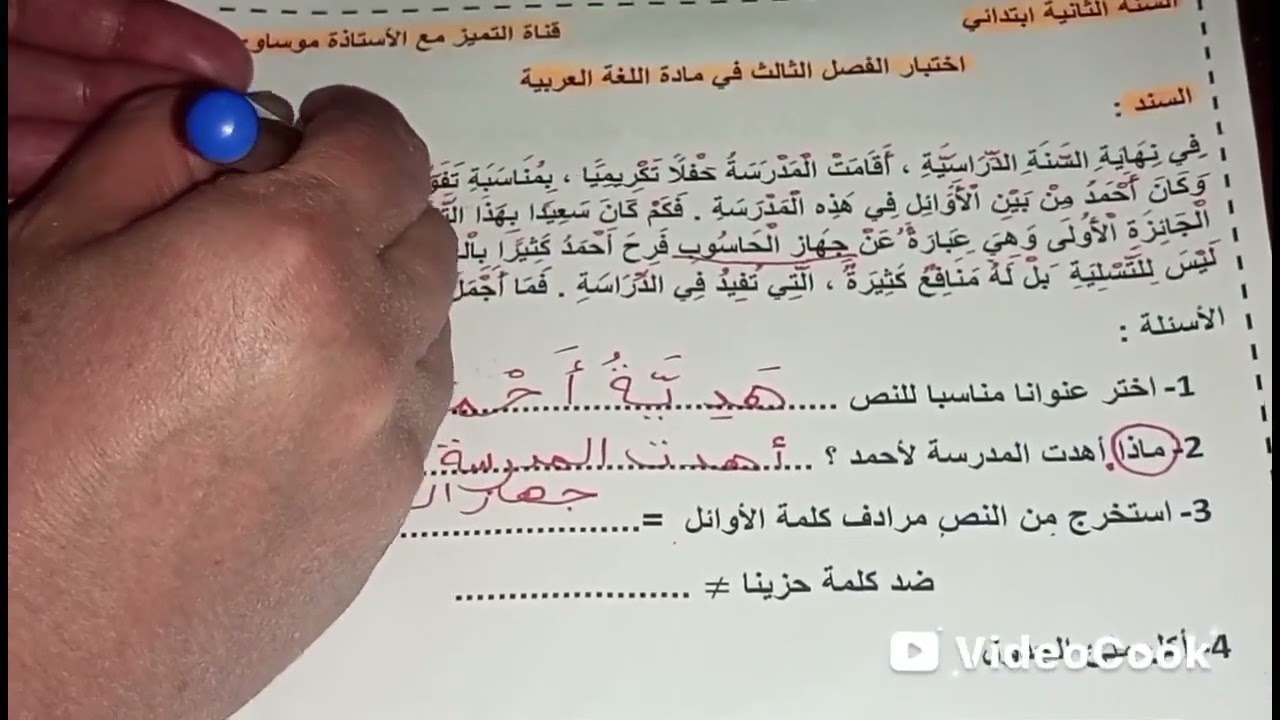 السنة الثانية ابتدائي
قناة التميز مع الأستاذة موساوي
اختبار الفصل الثالث في مادة اللغة العربية
السند :
فِي نِهَايَةِ السَّنَةِ الدِّرَاسِيَّةِ ، أَقَامَتْ الْمَدْرَسَةُ حَفْلًا تَكْرِيمِيًّا ، بِمُنَاسَبَةِ
وَكَانَ أَحْمَدُ مِنْ بَيْنِ الْأَوَائِلِ فِي هَذِه الْمَدْرَسَةِ . فَكَمْ كَانَ سَعِيدًا بِهَذَا
الْجَائِزَةِ الْأُولَى وَهِيَ عِبَارَةٌ عَنْ جِهَازِ الْحَاسُوبِ فَرِحَ أَحْمَدُ كَثِيرًا
لَيْسَ لِلتَّسْلِيَةِ بَلْ لَهُ مَنَافِعُ كَثِيرَةٌ ، الَّتِي تُفِيدُ فِي الدِّرَاسَةِ . فَمَا أَجْمَلَ
الأسئلة :
1- اختر عنوانا مناسبا للنص ..... هَدِيَّةُ أَحْمـ
2- ماذا أهدت المدرسة لأحمد ؟ ... أهدت المدرسة
جهاز الـ
3- استخرج مِن النصِ مرادف كلمة الأوائل =......................
ضد كلمة حزينا ≠ ......................
4- أكمل
VideoCook